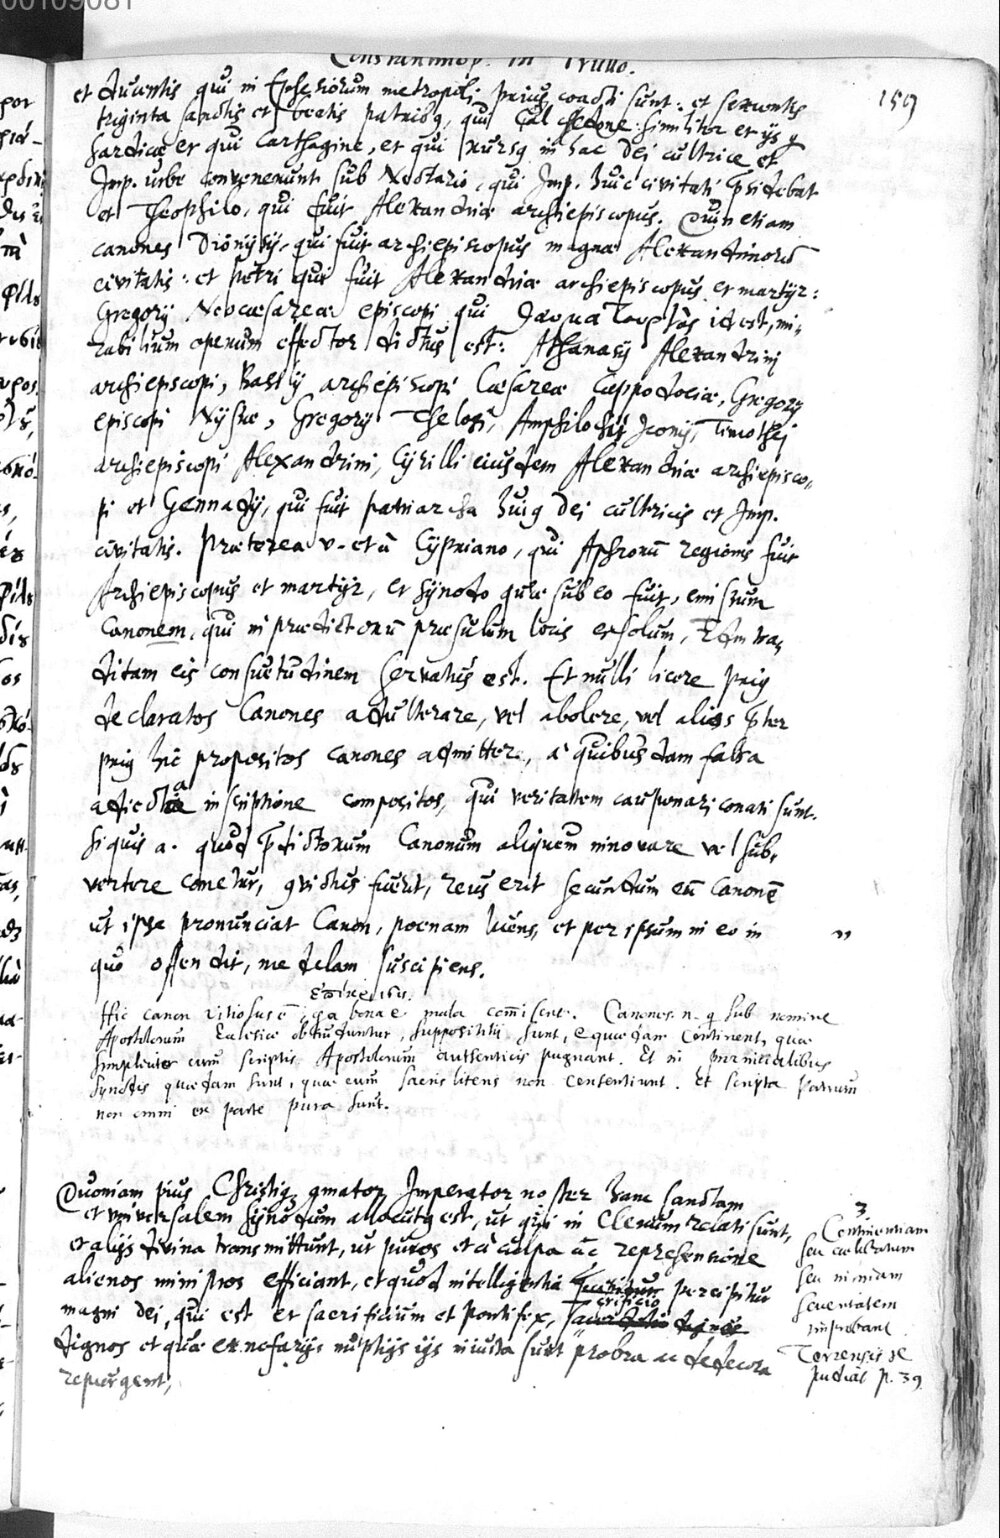 Constantinop. in Trullo.
159
et ducentis qui in Ephesiorum metropoli prius coacti sunt: et sexcentis
triginta sanctis et beatis patribq, qui Calchedone: similiter et ijs q
Sardicae et qui Carthagine, et qui rursq in hac Dei cultrice et
Imp. urbe convenerunt sub Nectario, qui Imp. huic civitati p̄sidebat
et Theophilo, qui fuit Alexandriae archiepiscopus. Quin etiam
canones Dionysij, qui fuit archiepiscopus magnae Alexandrinorū
civitatis: et Petri qui fuit Alexandriae archiepiscopus et martyr:
Gregorij Neocaesareae episcopi qui θαυματουργὸς id est, mi-
rabilium operum effector dictus est: Athanasij Alexandrini
archiepiscopi, Basilij archiepiscopi Caesareae Cappodociae, Gregorij
episcopi Nyssae, Gregorij Thelogi, Amphilochij Iconij, Timothej
archiepiscopi Alexandrini, Cyrilli eiusdem Alexandriae archiepisco-
pi et Gennadij, qui fuit patriarcha huiq Dei cultricis et Imp.
civitatis. Praeterea v. et ā Cypriano, qui Aphrorū regionis fuit
Archiepiscopus et martyr, et synodo quae sub eo fuit, emissum
Canonem, qui in praedictorū praesulum locis et solum, etm tra-
ditam eis consuetudinem servatus est. Et nulli licere priq
declaratos Canones adulterare, vel abolere, vel alios p̄ter
priq hic propositos canones admittere, a quibusdam falsa
adiecta inscriptione compositos, qui veritatem cauponari conati sunt.
Siquis a. quod p̄dictorum Canonum aliquem innovare vel sub-
vertere conetur, qvictus fuerit, reus erit secundum eū Canonē
ut ipse pronunciat Canon, poenam luens, et per ipsum in eo in
quo offendit, medelam suscipiens.
Ἐπίκρισις.
Hic canon vitiosus ē, ga bona et mala com̄iscent. Canones n. q sub nomine
Apostolorum Ecclesiae obtruduntur, supposititii sunt, et quaedam continent, quae
simpliciter cum scriptis Apostolorum authenticis pugnant. Et in provincialibus
synodis quaedam sunt, quae cum sacris literis non consentiunt. Et scripta Patrum
non omni ex parte pura sunt.
Quoniam pius Christiq amator Imperator noster hanc sanctam
et universalem synodum allocutq est, ut qui in Clerum relati sunt,
et alijs divina transmittunt, ut puros et a culpa ac reprehensione
alienos ministros efficiant, et quod intelligentia percipitur
magni Dei, qui est et sacrificium et pontifex, sacrificio
dignos et quae ex nefarijs nuptijs ijs iniusta sunt probra ac dedecora
repurgent,
3.
Continentiam
seu coelibatum
seu nimiam
severitatem
improbant
Torrensis de
judiat p. 39